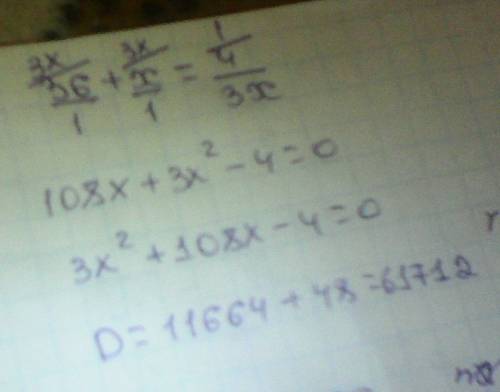 3x/36/1 + 3x/x/1 = 1/4/3x
108x + 3x² - 4 = 0
3x² + 108x - 4 = 0
D = 11664 + 48 = 61712